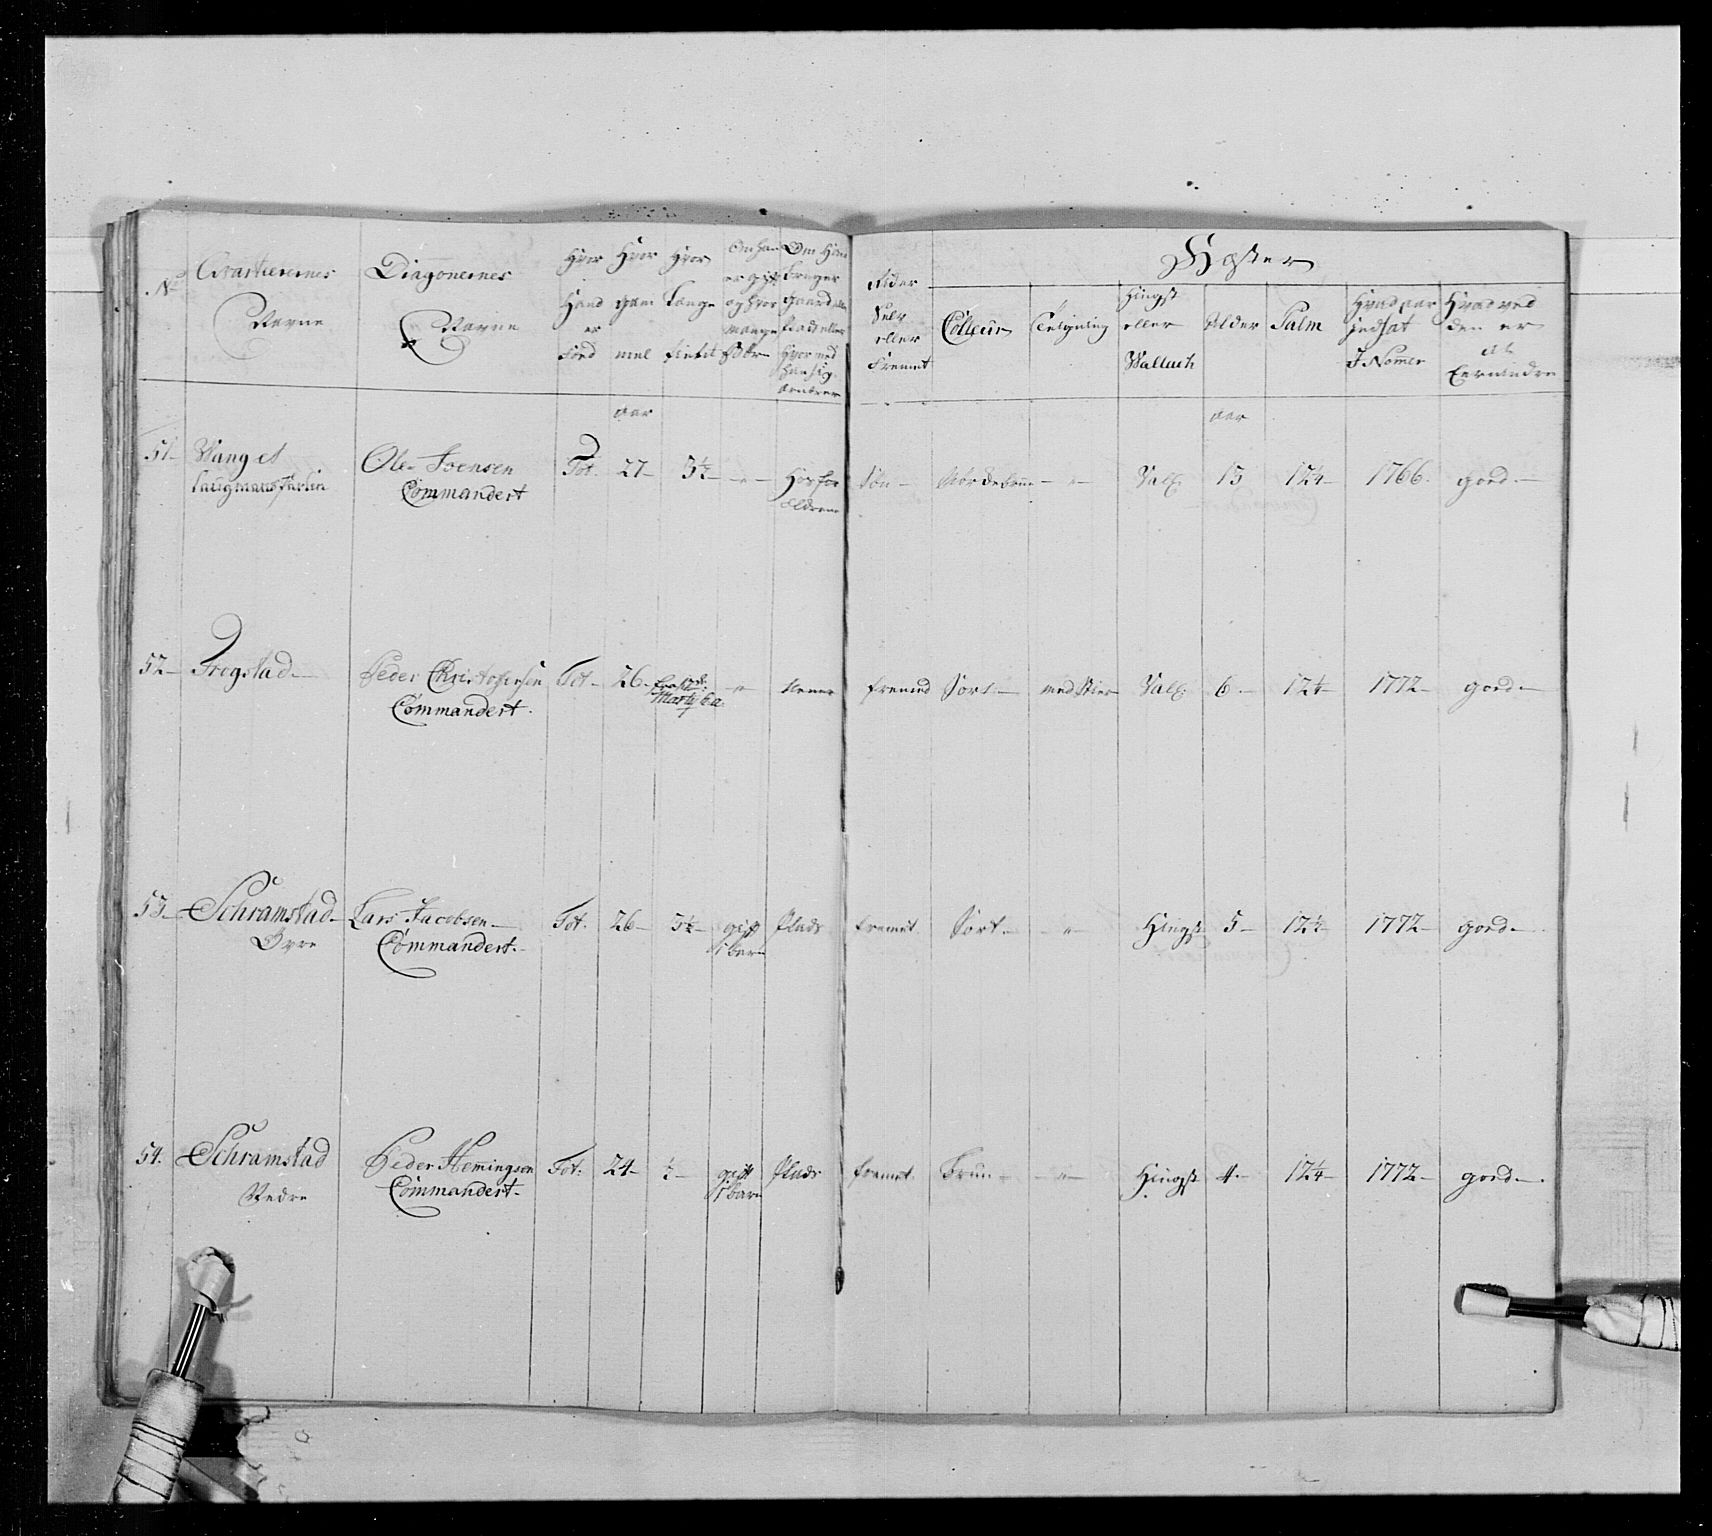 No Qvarterernes Navne
Dragonernes Navne
Hvor Hand er Fød
Hvor gam mel
Hvor Længe tient
Om han er gift og hvor mange Børn
Om Han bruger gaard eller Plads eller Hvor med han sig ernærer
Rider Selv eller Fremmet
Hæster
Colleur
Teigning
Hingst eller Wallach
Alder
Palm
Hvad aar indsat I Nomer
Hvad ved den er at Erindre
aar
aar
51 Wang et Laugmans
Ole Svensen Commandert
Tot. 27 5½ " Hos for ældrene
Søn " Valk 15 12¼ 1766. goed
52 Frogstad
Peder Christophersen Commandert.
Tot 26 Marty " tiener
fremed Sort med Stier Valk 6 12¼ 1772 goed
53 Schramstad Øvre
Lars Jacobsen Commandert.
Tot. 26 5½ gift 1 barn Plads
fremmet Sort " Hingst 5 12½ 1772 goed
54. Schramstad Nedre
Peder Hemingsen Commandert.
Tot: 24 ½ gift 1 barn Plads
fremmet Brun " Hingst 4 12¼ 1772 goed